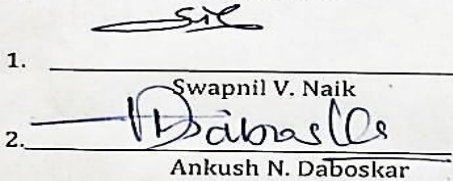 1.
Swapnil V. Naik
2.
Ankush N. Daboskar